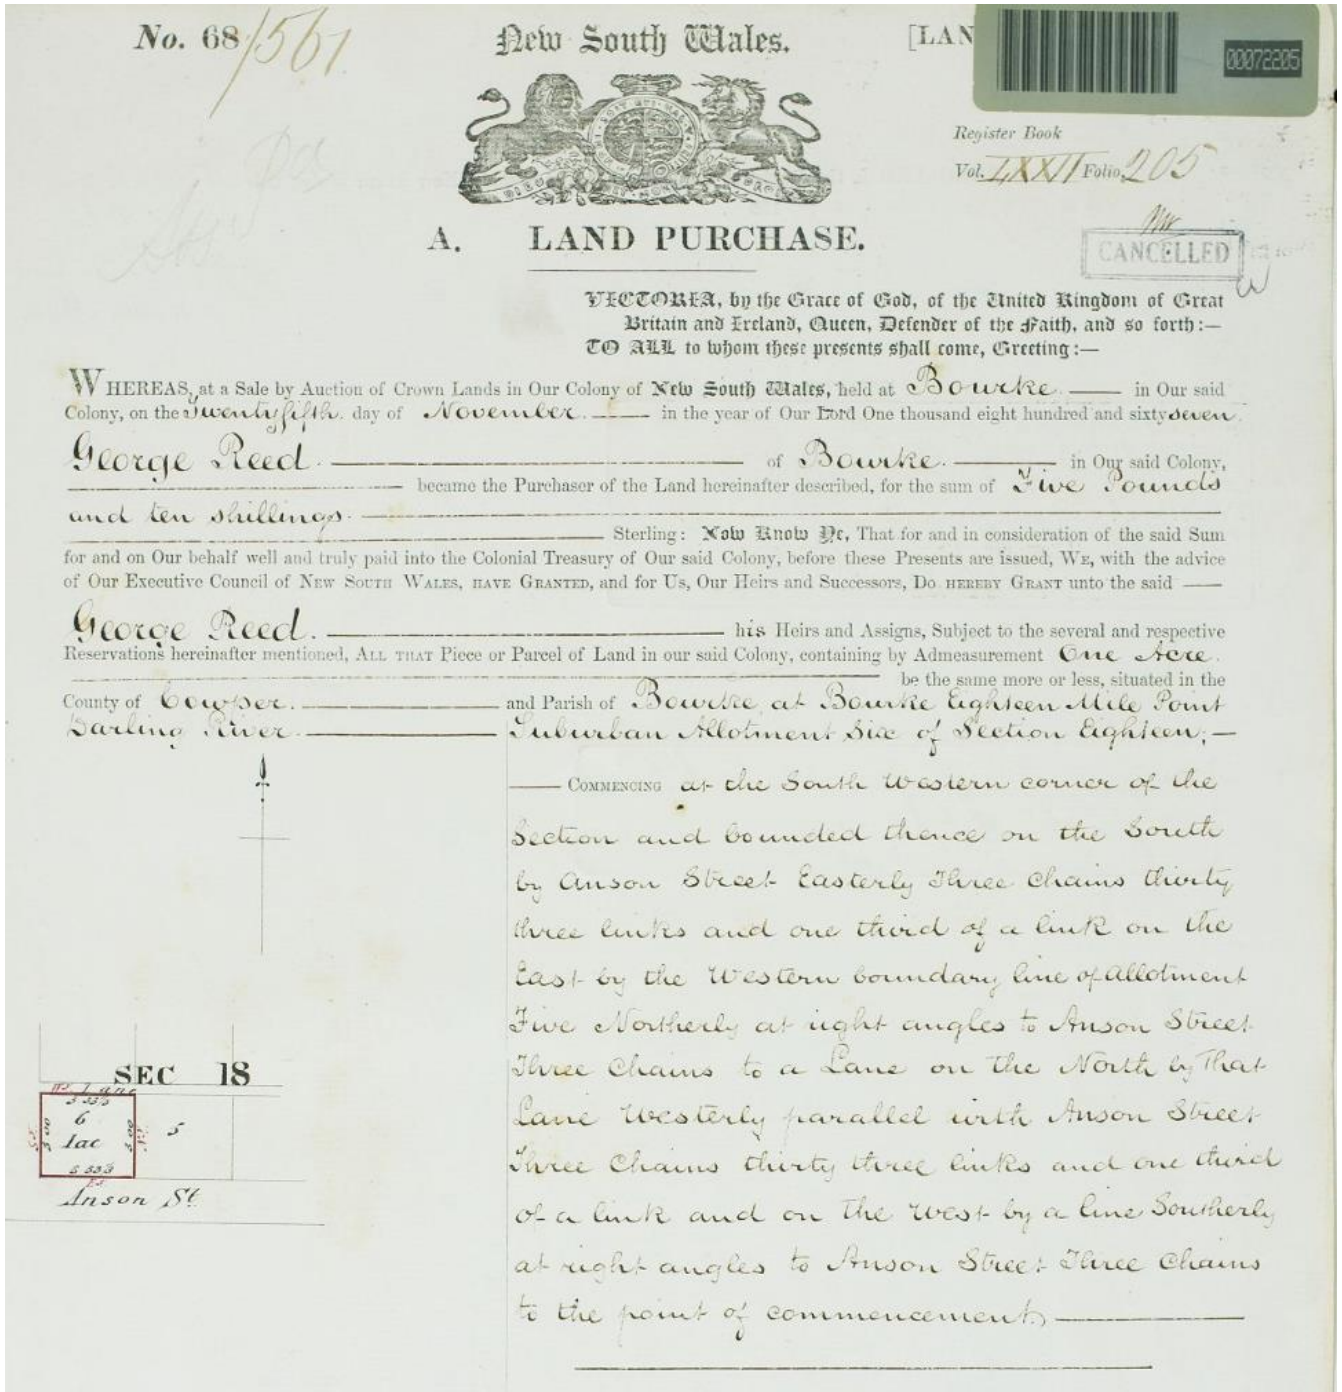 No. 68/561
New South Wales.
[LAN
00072205
Register Book
Vol. LXXII Folio 205
CANCELLED
A. LAND PURCHASE.
VICTORIA, by the Grace of God, of the United Kingdom of Great
Britain and Ireland, Queen, Defender of the Faith, and so forth:—
TO ALL to whom these presents shall come, Greeting:—
WHEREAS, at a Sale by Auction of Crown Lands in Our Colony of New South Wales, held at Bourke. — in Our said
Colony, on the Twenty fifth day of November. — in the year of Our Lord One thousand eight hundred and sixty seven.
George Reed. — of Bourke. — in Our said Colony,
— became the Purchaser of the Land hereinafter described, for the sum of Five Pounds
and ten shillings. —
— Sterling: Now Know Ye, That for and in consideration of the said Sum
for and on Our behalf well and truly paid into the Colonial Treasury of Our said Colony, before these Presents are issued, WE, with the advice
of Our Executive Council of NEW SOUTH WALES, HAVE GRANTED, and for Us, Our Heirs and Successors, DO HEREBY GRANT unto the said —
George Reed. — his Heirs and Assigns, Subject to the several and respective
Reservations hereinafter mentioned, ALL THAT Piece or Parcel of Land in our said Colony, containing by Admeasurement One Acre.
— be the same more or less, situated in the
County of Cowper. — and Parish of Bourke, at Bourke Eighteen Mile Point
Darling River. — Suburban Allotment Six of Section Eighteen; —
— COMMENCING at the South Western corner of the
Section and bounded thence on the South
by Anson Street Easterly Three Chains thirty
three links and one third of a link on the
East by the Western boundary line of allotment
Five Northerly at right angles to Anson Street
Three Chains to a Lane on the North by That
Lane Westerly parallel with Anson Street
Three Chains thirty three links and one third
of a link and on the West by a line Southerly
at right angles to Anson Street Three Chains
to the point of commencement. —
SEC 18
Lane
3 33⅓
6
1ac
3 00
3 00
5
3 33⅓
Anson St.